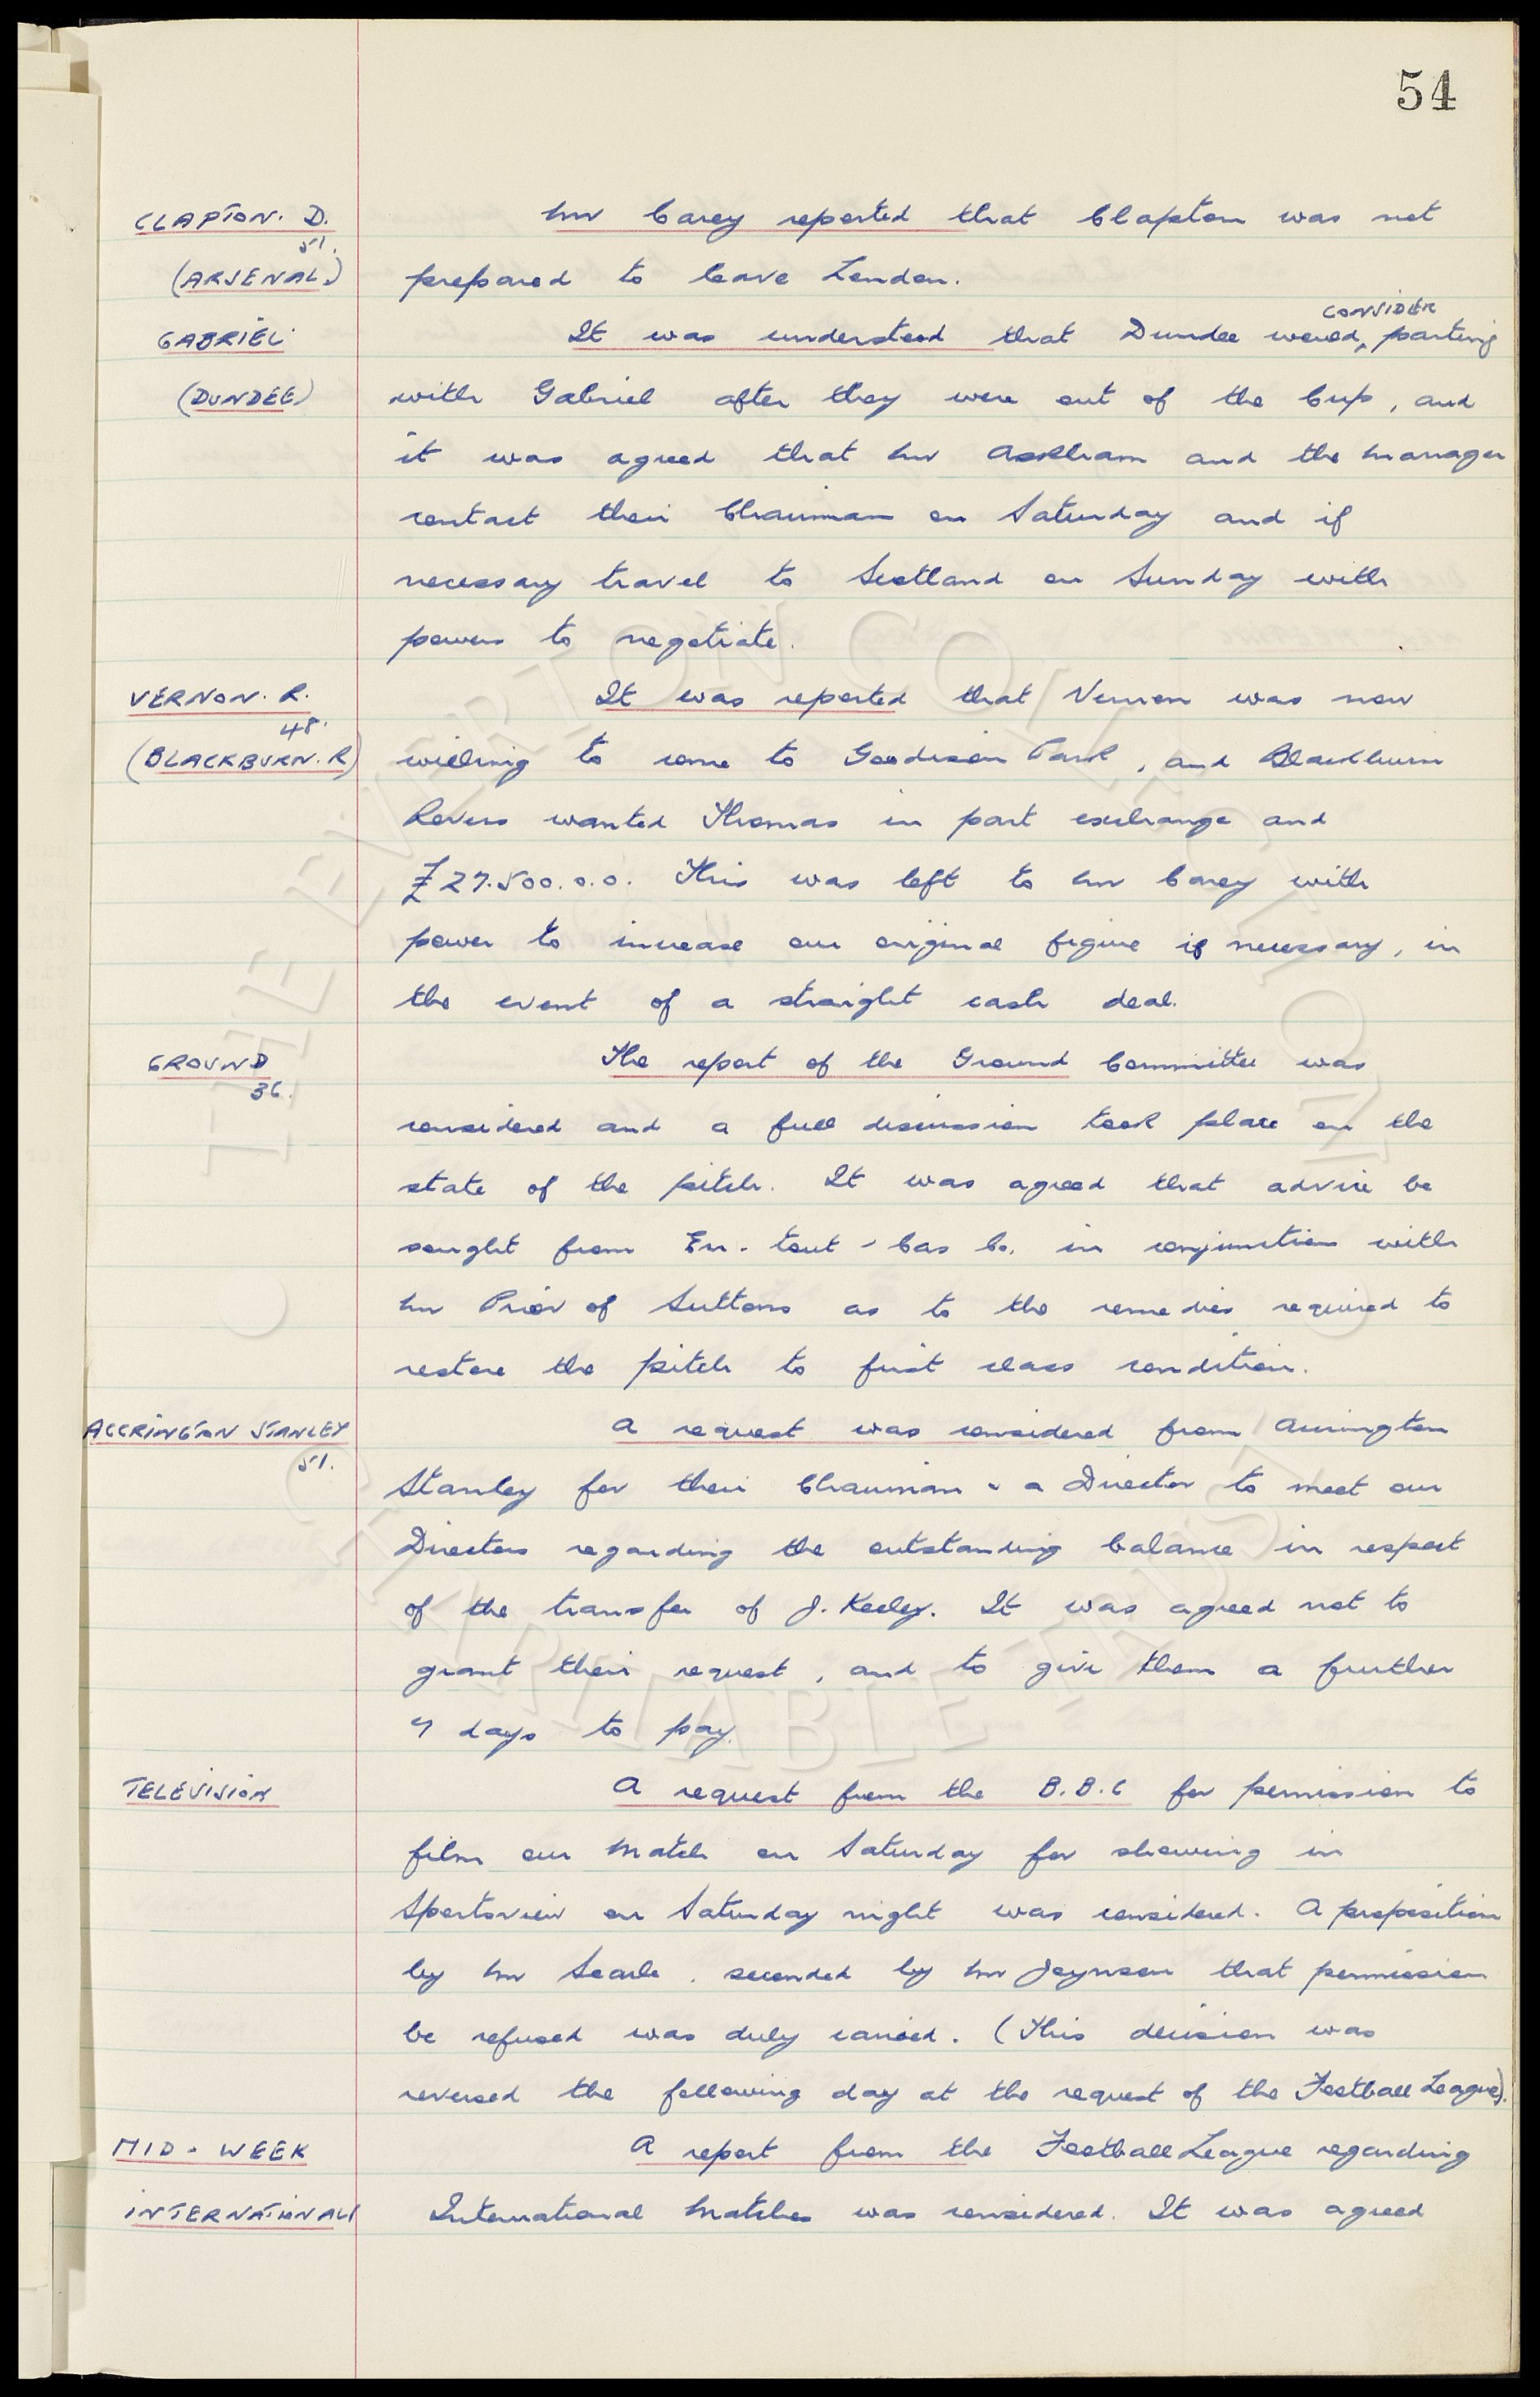 54
CLAPTON. D. Mr Carey reported that Clapton was not
51.
(ARSENAL.) prepared to leave London.
CONSIDER
GABRIEL. It was understood that Dundee would ‸ parting
(DUNDEE) with Gabriel after they were out of the Cup, and
it was agreed that Mr Askham and the Manager
contact their Chairman on Saturday and if
necessary travel to Scotland on Sunday with
powers to negotiate.
VERNON. R. It was reported that Vernon was now
48.
(BLACKBURN. R) willing to come to Goodison Park, and Blackburn
Rovers wanted Thomas in part exchange and
£27.500.0.0. This was left to Mr Carey with
power to increase our original figure if necessary, in
the event of a straight cash deal.
GROUND The report of the Ground Committee was
36.
considered and a full discussion took place on the
state of the pitch. It was agreed that advice be
sought from En-Tout-Cas Co. in conjunction with
Mr Prior of Suttons as to the remedies required to
restore the pitch to first class condition.
ACCRINGTON STANLEY A request was considered from Accrington
51.
Stanley for their Chairman & a Director to meet our
Directors regarding the outstanding balance in respect
of the transfer of J. Keeley. It was agreed not to
grant their request, and to give them a further
7 days to pay.
TELEVISION A request from the B.B.C for permission to
film our match on Saturday for showing in
Sportsview on Saturday night was considered. A proposition
by Mr Searle, seconded by Mr Joynson that permission
be refused was duly carried. (This decision was
reversed the following day at the request of the Football League).
MID-WEEK A report from the Football League regarding
INTERNATIONALS International Matches was considered. It was agreed
THE EVERTON COLLECTION
CHARITABLE TRUST